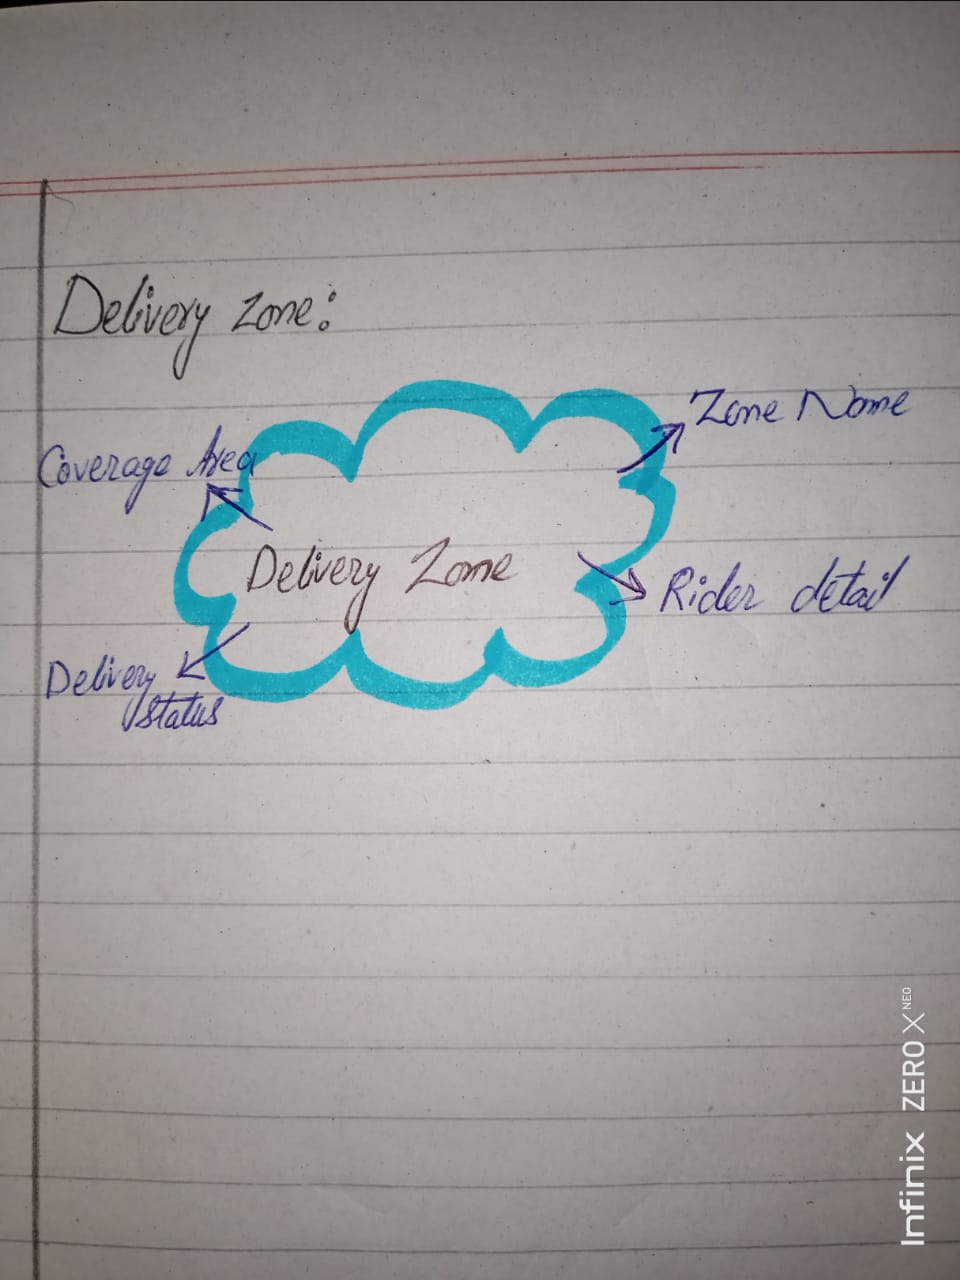 Delivery Zone:
Coverage Area
Zone Name
Delivery Zone
Rider detail
Delivery
status
Infinix ZERO X NEO